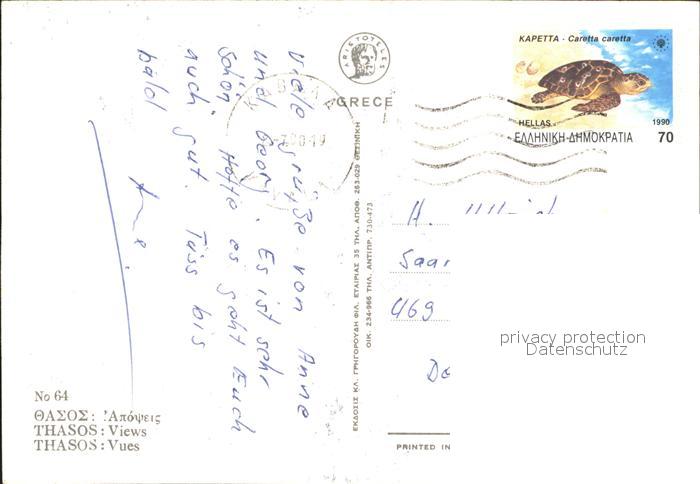 ΚΑΡΕΤΤΑ - Caretta caretta
HELLAS 1990
ΕΛΛΗΝΙΚΗ·ΔΗΜΟΚΡΑΤΙΑ 70
ARISTOTELES
GREECE
Viele Grüße von Anne
und Georg. Es ist sehr
schön. Hoffe es geht Euch
auch gut. Tüss bis
bald
Anne
ΕΚΔΟΣΙΣ ΚΛ. ΓΡΗΓΟΡΟΥΔΗ ΦΙΛ. ΕΤΑΙΡΙΑΣ 35 ΤΗΛ. ΑΠΟΘ. 263-029 ΘΕΣ/ΝΙΚΗ
ΟΙΚ. 234-966 ΤΗΛ. ΑΝΤΙΠΡ. 730-473
H.
Saar
469
privacy protection
Datenschutz
De
No 64
ΘΑΣΟΣ: Ἀπόψεις
THASOS: Views
THASOS: Vues
PRINTED IN